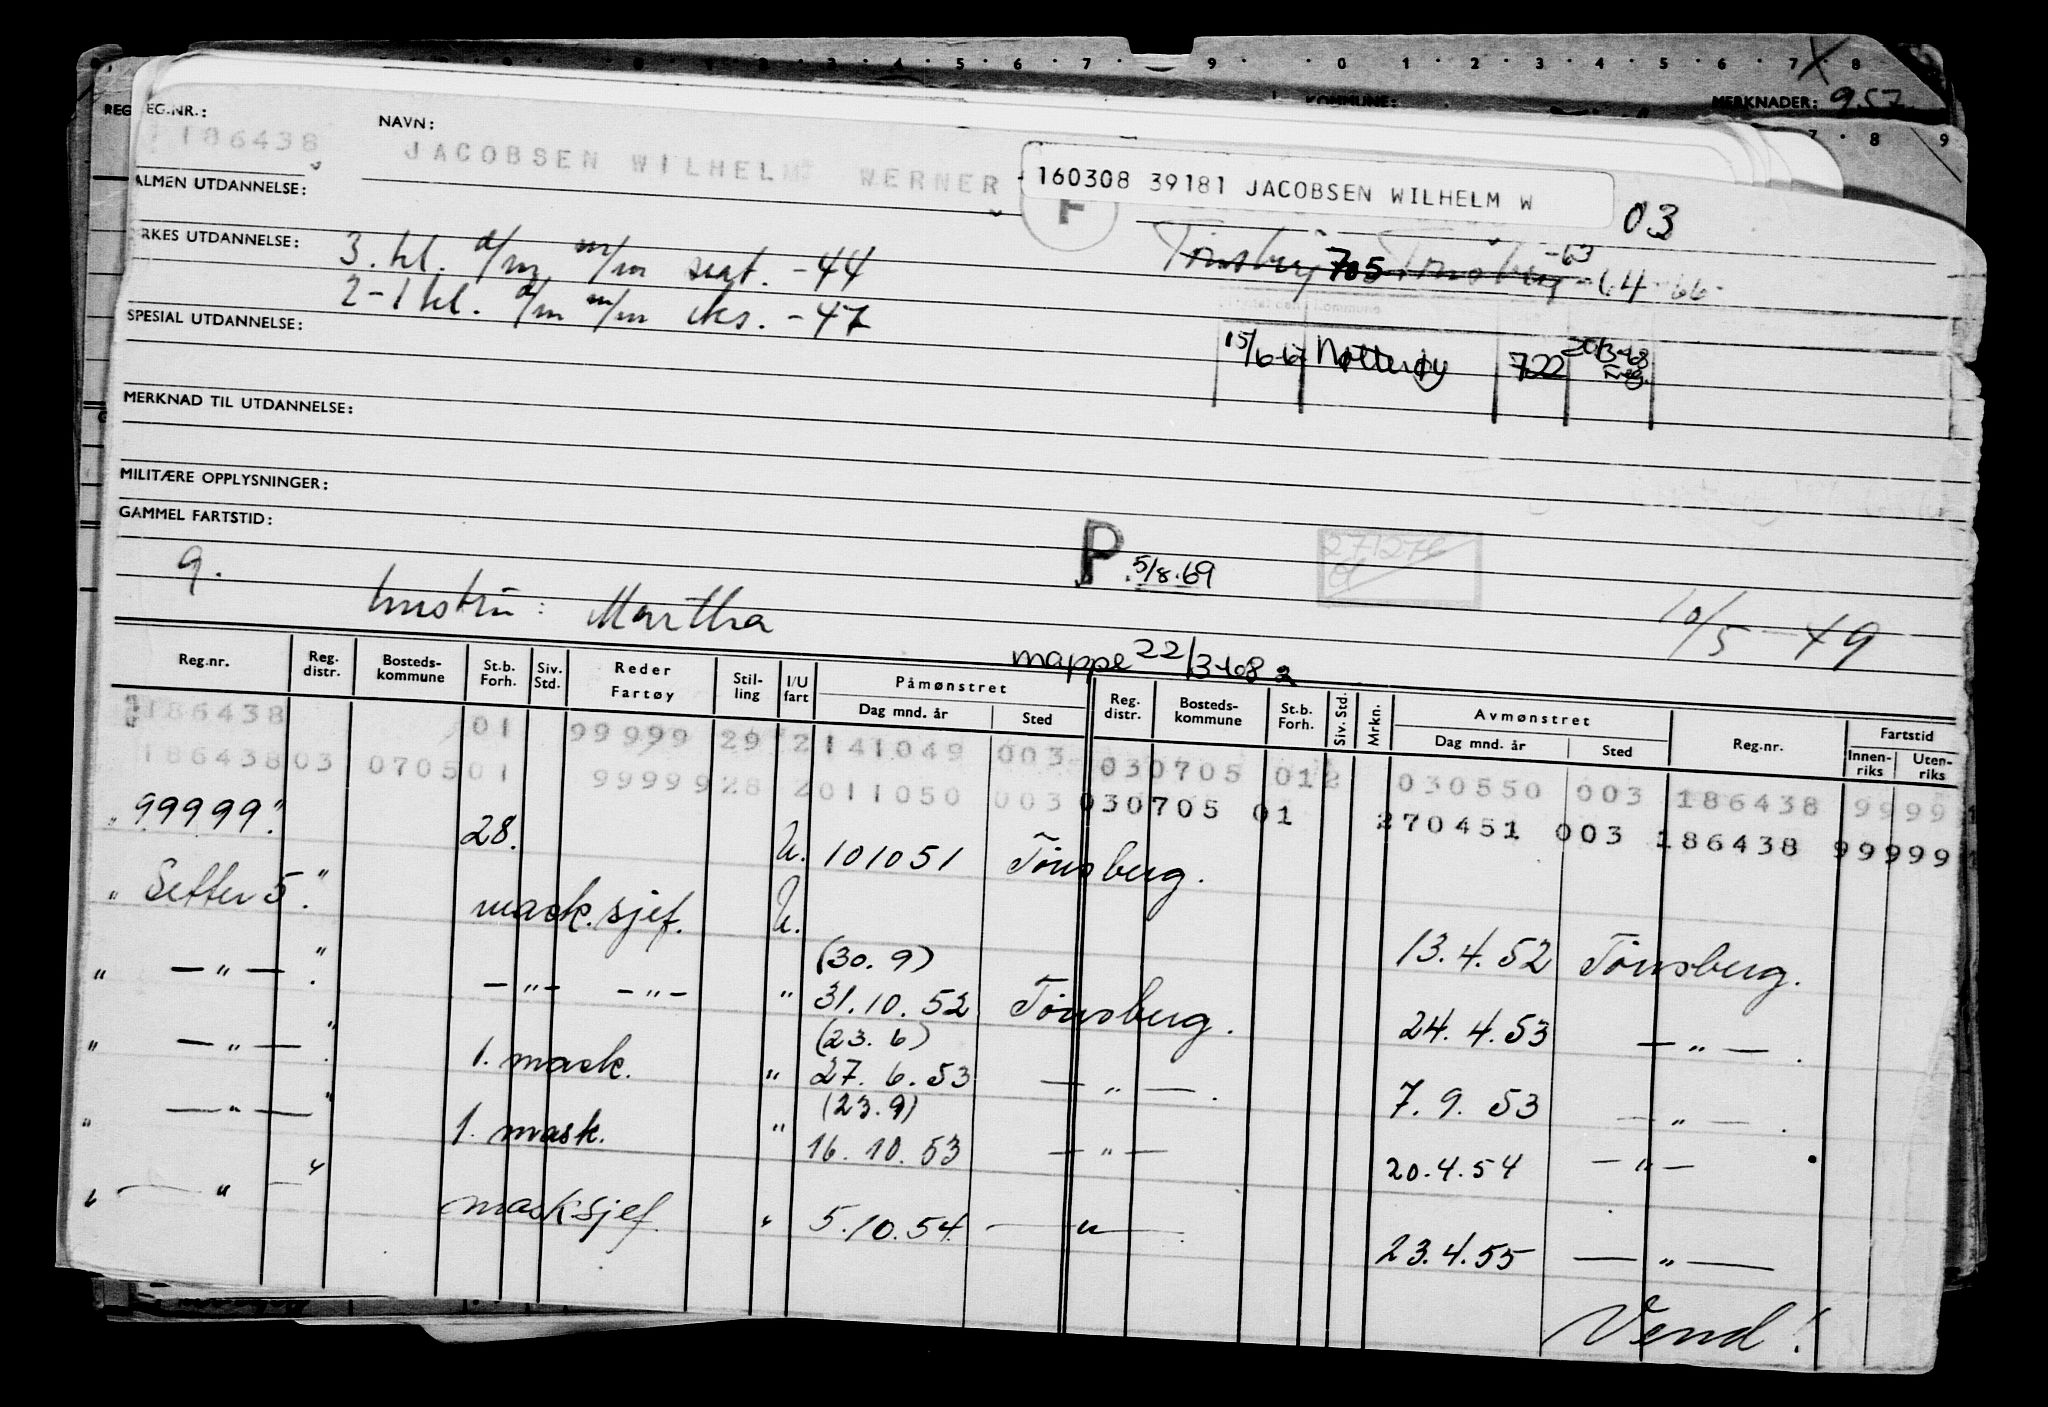 MERKNADER: 957.
KOMMUNE:
REG.NR.: NAVN:
186438 JACOBSEN WILHELM WERNER
160308 39181 JACOBSEN WILHELM W
03
ALMEN UTDANNELSE:
F
YRKES UTDANNELSE: 3. kl. d/m m/m sert. -44
Tønsberg 705 Tønsberg -63 -64 -66
2-1 kl. d/m m/m eks. -47
SPESIAL UTDANNELSE:
15/6-6 Nøtterøy 722 20/3-68 Freg.
MERKNAD TIL UTDANNELSE:
MILITÆRE OPPLYSNINGER:
GAMMEL FARTSTID:
P 5/8.69
271276
9. hustru: Martha
10/5-49
mappe 22/3-68
Reg.nr. Reg. distr. Bosteds-kommune St.b. Forh. Siv. Std. Reder Fartøy Stil-ling I/U fart Påmønstret Dag mnd. år Sted Reg. distr. Bosteds-kommune St.b. Forh. Siv. Std. Mrkn. Avmønstret Dag mnd. år Sted Reg.nr. Fartstid Innen-riks Uten-riks
186438 01 99999 29 2 141049 003 030705 012 030550 003 186438 9999
186438 03 0705 01 99999 28 2 011050 003 030705 01 270451 003 186438 99999
" 99999." 28. U. 101051 Tønsberg.
" Setter 5." mask.sjef. U. 13.4.52 Tønsberg.
(30.9)
" — " — ". — " — — " — " 31.10.52 Tønsberg. 24.4.53 — " — .
(23.6)
" — " — ". 1. mask. " 27.6.53 — " — . 7.9.53 — " — .
(23.9)
" — " — " 1. mask. " 16.10.53 — " — 20.4.54 — " —
" — " — " masksjef " 5.10.54 — " — 23.4.55 — " —
Vend!